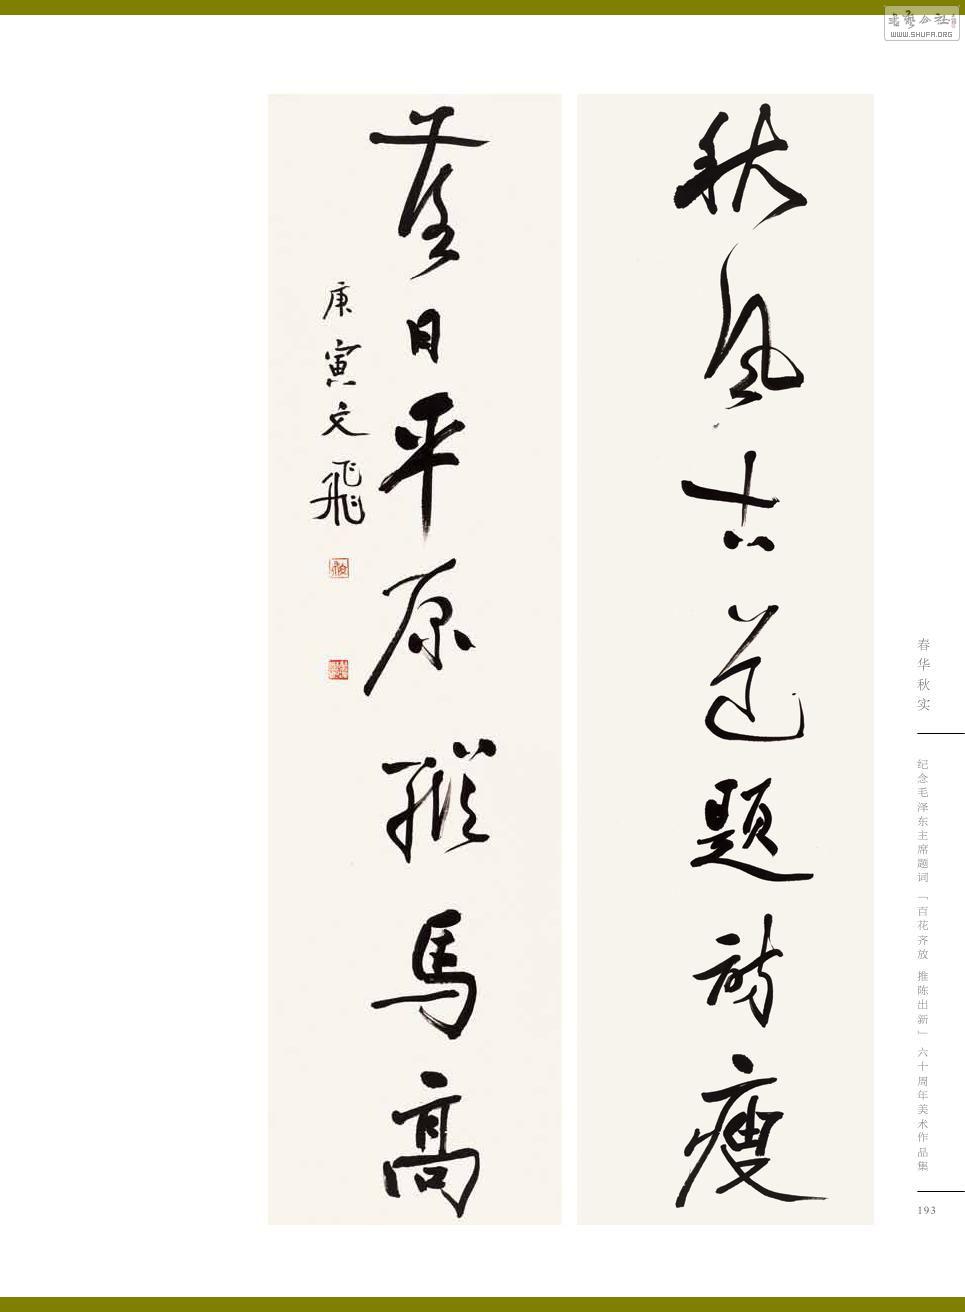 書藝公社
WWW.SHUFA.ORG
秋風古道題詩瘦
落日平原縱馬高
庚寅文飛
春华秋实
纪念毛泽东主席题词「百花齐放 推陈出新」六十周年美术作品集
193